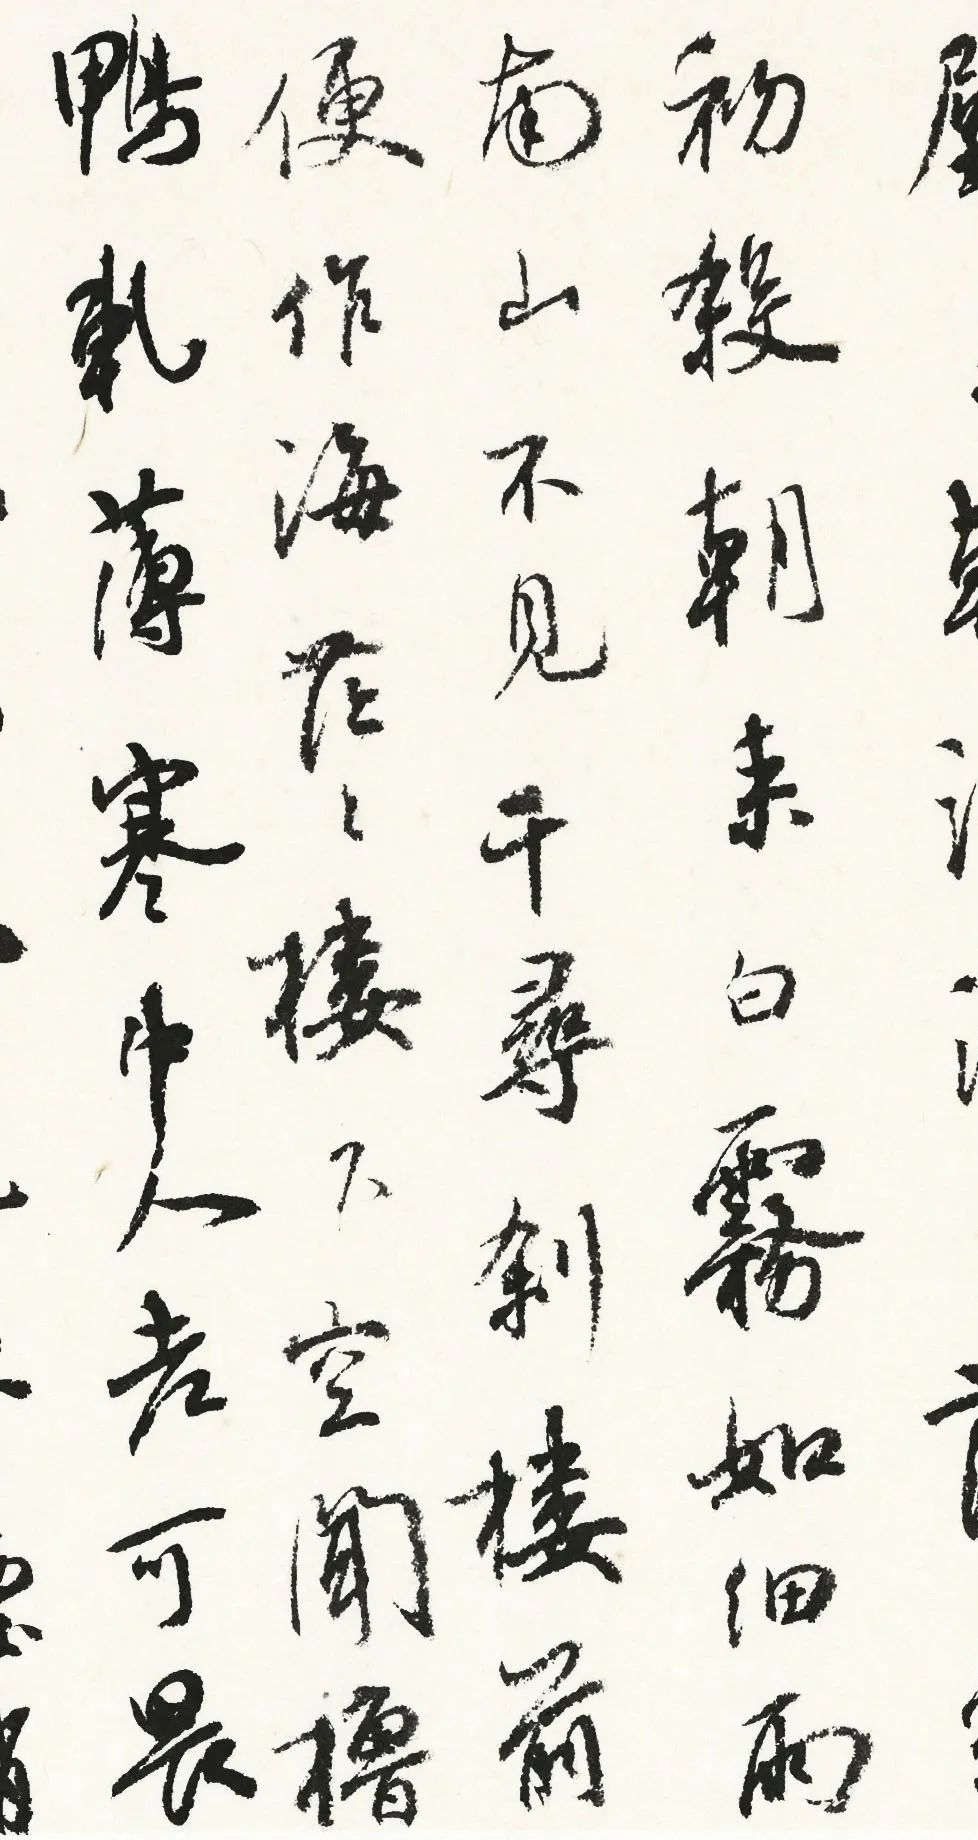 初殺朝来白霧如细雨
南山不見千尋刹楼前
便作海茫〻楼下空聞櫓
鴨軋薄寒中人老可畏